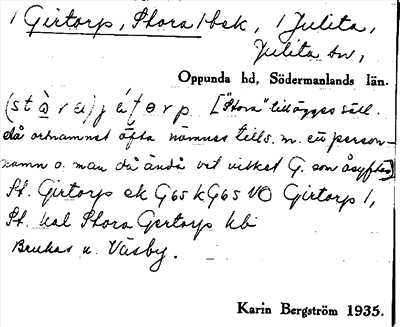 / Girtorp, Stora / bsk, / Julita,
Julita sn,
Oppunda hd, Södermanlands län.
(stòra) já/torp ["Stora" tillägges säll.
då ortnamnet ofta nämnes tills. m. ett person-
namn o. man då ändå vet vilket G. som åsyftas]
St. Girtorp ek G65 k G65 VO Girtorp 1,
St. kal Stora Gertorp kb
Brukas u. Väsby.
Karin Bergström 1935.